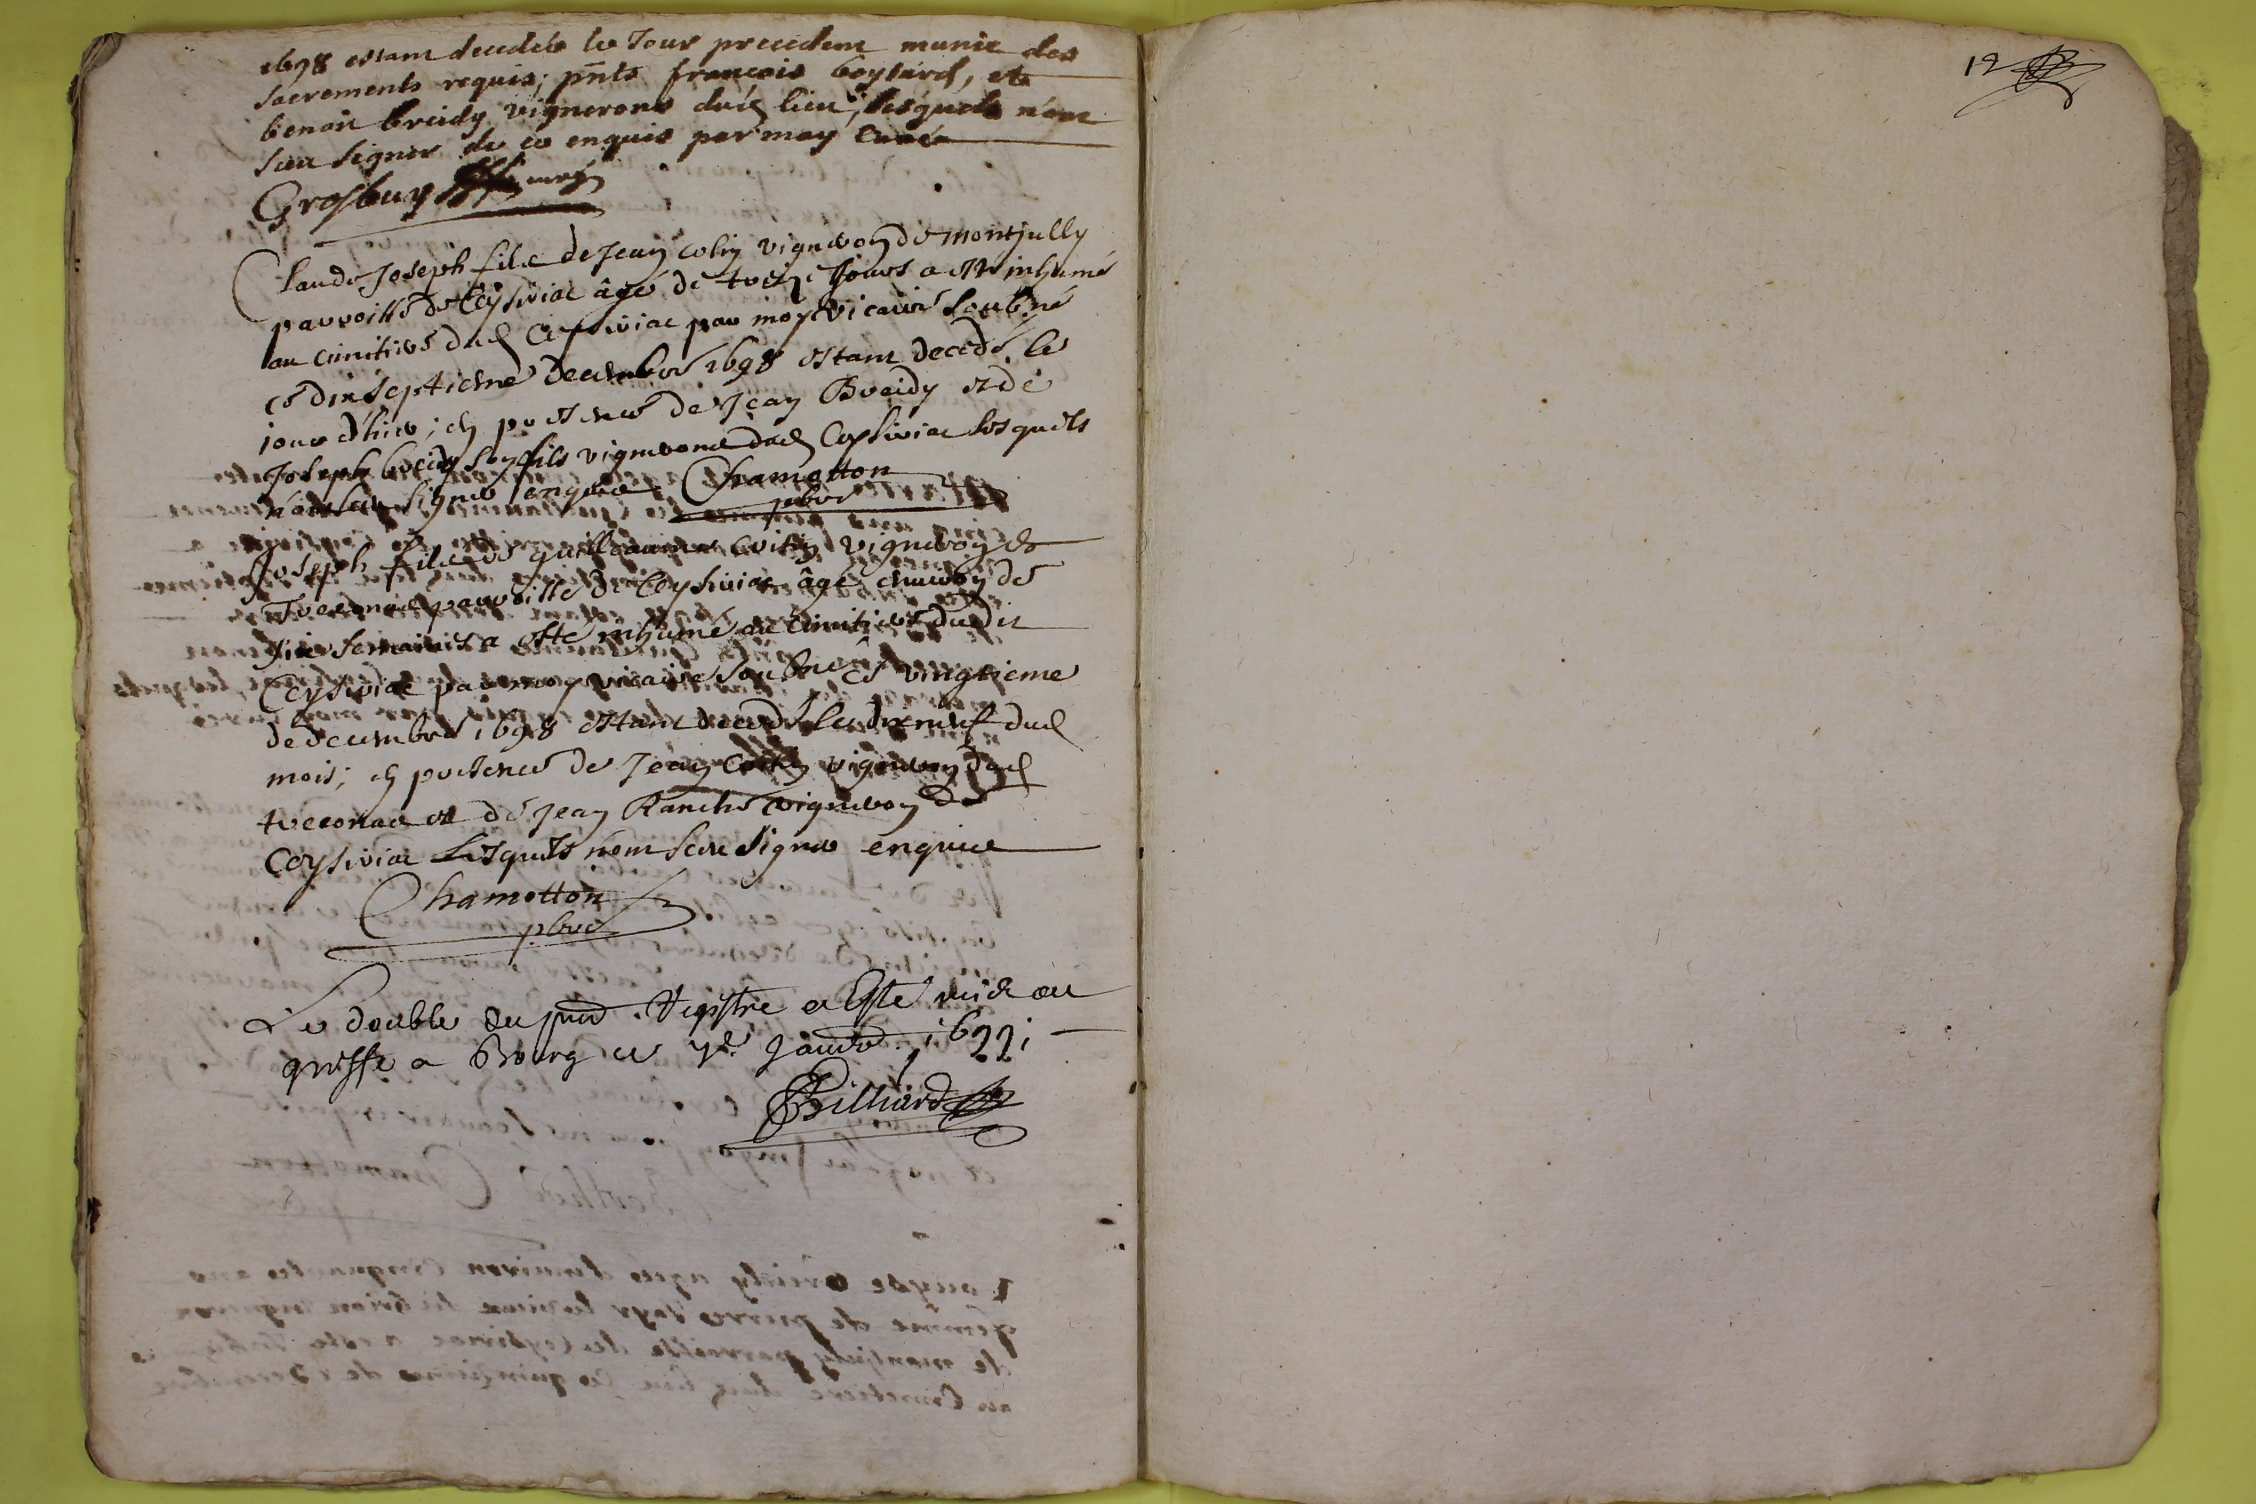 1698 estant decedée le Jour precedent munie des
sacrements requis; pnts francois boysard, et
benoit breidy vignerons dud lieu, lesquels n'ont
sceu signer de ce enquis par moy Curé
Grosbuy curé
Claude Joseph fils de Jean colin vigneron de montjully
parroisse de Ceysiriac âgé de treize Jours a esté inhumé
au cimitiere dud Ceysiriac par moy vicaire soubné
ce dixseptieme decembre 1698 estant decedé le
jour d'hier; en presence de Jean Breidy et de
Joseph breidy son fils vignerons dud Ceysiriac lesquels
n'ont sceu signer enquis Chamotton
pbre
Joseph fils de guillaume vigneron de
Treconas parroisse de Ceysiriac âgé environ de
six semaines a esté inhumé au cimitiere dudit
Ceysiriac par moy vicaire soubné ce vingtieme
de decembre 1698 estant decedé le dixneuf dud
mois; en presence de Jean vigneron dud
treconas et de Jean Ranche vigneron de
Ceysiriac lesquels n'ont sceu signer enquis
Chamotton
pbre
Le double du pnt Registre a Esté mis au
greffe a Bourg ce 7e Janvr. 1699;
Billiard
12